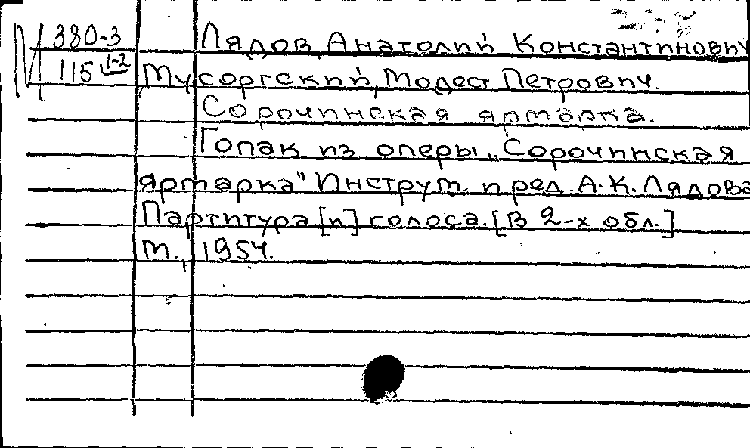 М 380-3 Лядов, Анатолий Константинович
115 1-2 Мусоргский, Модест Петрович.
Сорочинская ярмарка.
Гопак из оперы „Сорочинская
ярмарка" Инструм. и ред. А.К. Лядова
Партитура [и] голоса. [В 2-х обл.]
М., 1954.